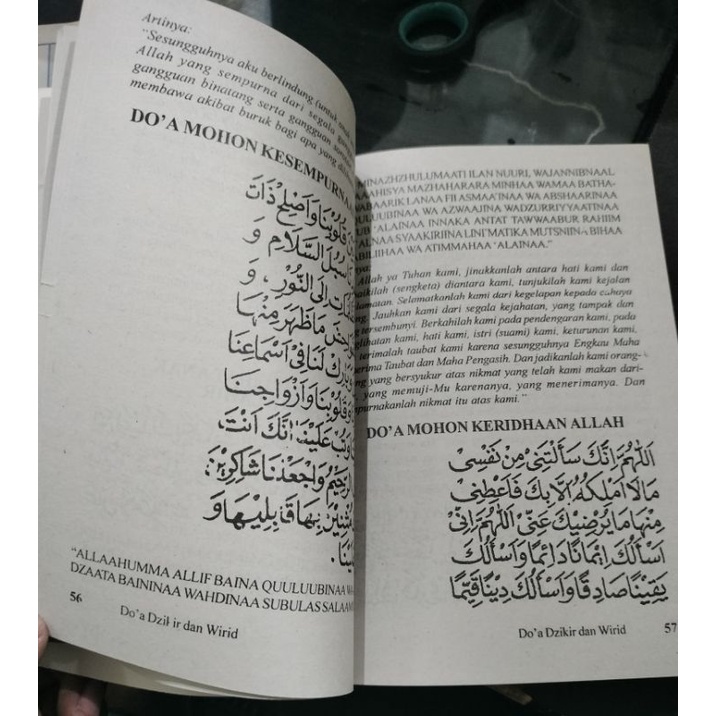 Artinya:
"Sesungguhnya aku berlindung (untuk
Allah yang sempurna dari segala
gangguan binatang serta gangguan
membawa akibat buruk bagi apa yang
DO'A MOHON KESEMPURNA
قُلُوْبِنَا وَاَصْلِحْ ذَاتَ
سُبُلَ السَّلَامِ وَ
اِلَى النُّوْرِ، وَ
مَا ظَهَرَ مِنْهَا
بَارِكْ لَنَا فِيْ اَسْمَاعِنَا
وَقُلُوْبِنَا وَاَزْوَاجِنَا
وَتُبْ عَلَيْنَا اِنَّكَ اَنْتَ
الرَّحِيْمُ وَاجْعَلْنَا شَاكِرِيْنَ
بِهَا قَابِلِيْهَا وَ
"ALLAAHUMMA ALLIF BAINA QUULUUBINAA
DZAATA BAININAA WAHDINAA SUBULAS SALAAM
56
Do'a Dzikir dan Wirid
MINAZHZHULUMAATI ILAN NUURI, WAJANNIBNAAL
AAHISYA MAZHAHARARA MINHAA WAMAA BATHA-
BAARIK LANAA FII ASMAA'INAA WA ABSHAARINAA
ULUUBINAA WA AZWAAJINA WADZURRIYYAATINAA
'ALAINAA INNAKA ANTAT TAWWAABUR RAHIIM
ALNAA SYAAKIRIINA LINI'MATIKA MUTSNIINA BIHAA
BILIIHAA WA ATIMMAHAA 'ALAINAA."
Allah ya Tuhan kami, jinakkanlah antara hati kami dan
baikilah (sengketa) diantara kami, tunjukilah kami kejalan
lamatan. Selamatkanlah kami dari kegelapan kepada cahaya
Jauhkan kami dari segala kejahatan, yang tampak dan
tersembunyi. Berkahilah kami pada pendengaran kami, pada
glihatan kami, hati kami, istri (suami) kami, keturunan kami,
terimalah taubat kami karena sesungguhnya Engkau Maha
erima Taubat dan Maha Pengasih. Dan jadikanlah kami orang-
yang bersyukur atas nikmat yang telah kami makan dari-
yang memuji-Mu karenanya, yang menerimanya. Dan
purnakanlah nikmat itu atas kami."
DO'A MOHON KERIDHAAN ALLAH
اَللّٰهُمَّ اِنَّكَ سَأَلْتَنِيْ مِنْ نَفْسِيْ
مَالَا اَمْلِكُهُ اِلَّا بِكَ فَاَعْطِنِيْ
مِنْهَا مَا يُرْضِيْكَ عَنِّيْ اَللّٰهُمَّ اِنِّيْ
اَسْأَلُكَ اِيْمَانًا دَائِمًا وَاَسْأَلُكَ
يَقِيْنًا صَادِقًا وَاَسْأَلُكَ دِيْنًا قَيِّمًا
Do'a Dzikir dan Wirid
57